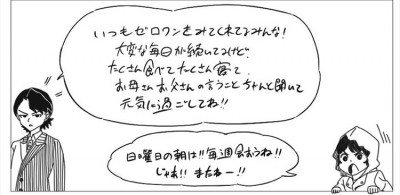 いつもゼロワンをみてくれてるみんな!
大変な毎日が続いてるけど!
たくさん食べてたくさん寝て
お母さんお父さんの言うことちゃんと聞いて
元気に過ごしてね!!
日曜日の朝は!!毎週会おうね!!
じゃあ!!またねー!!